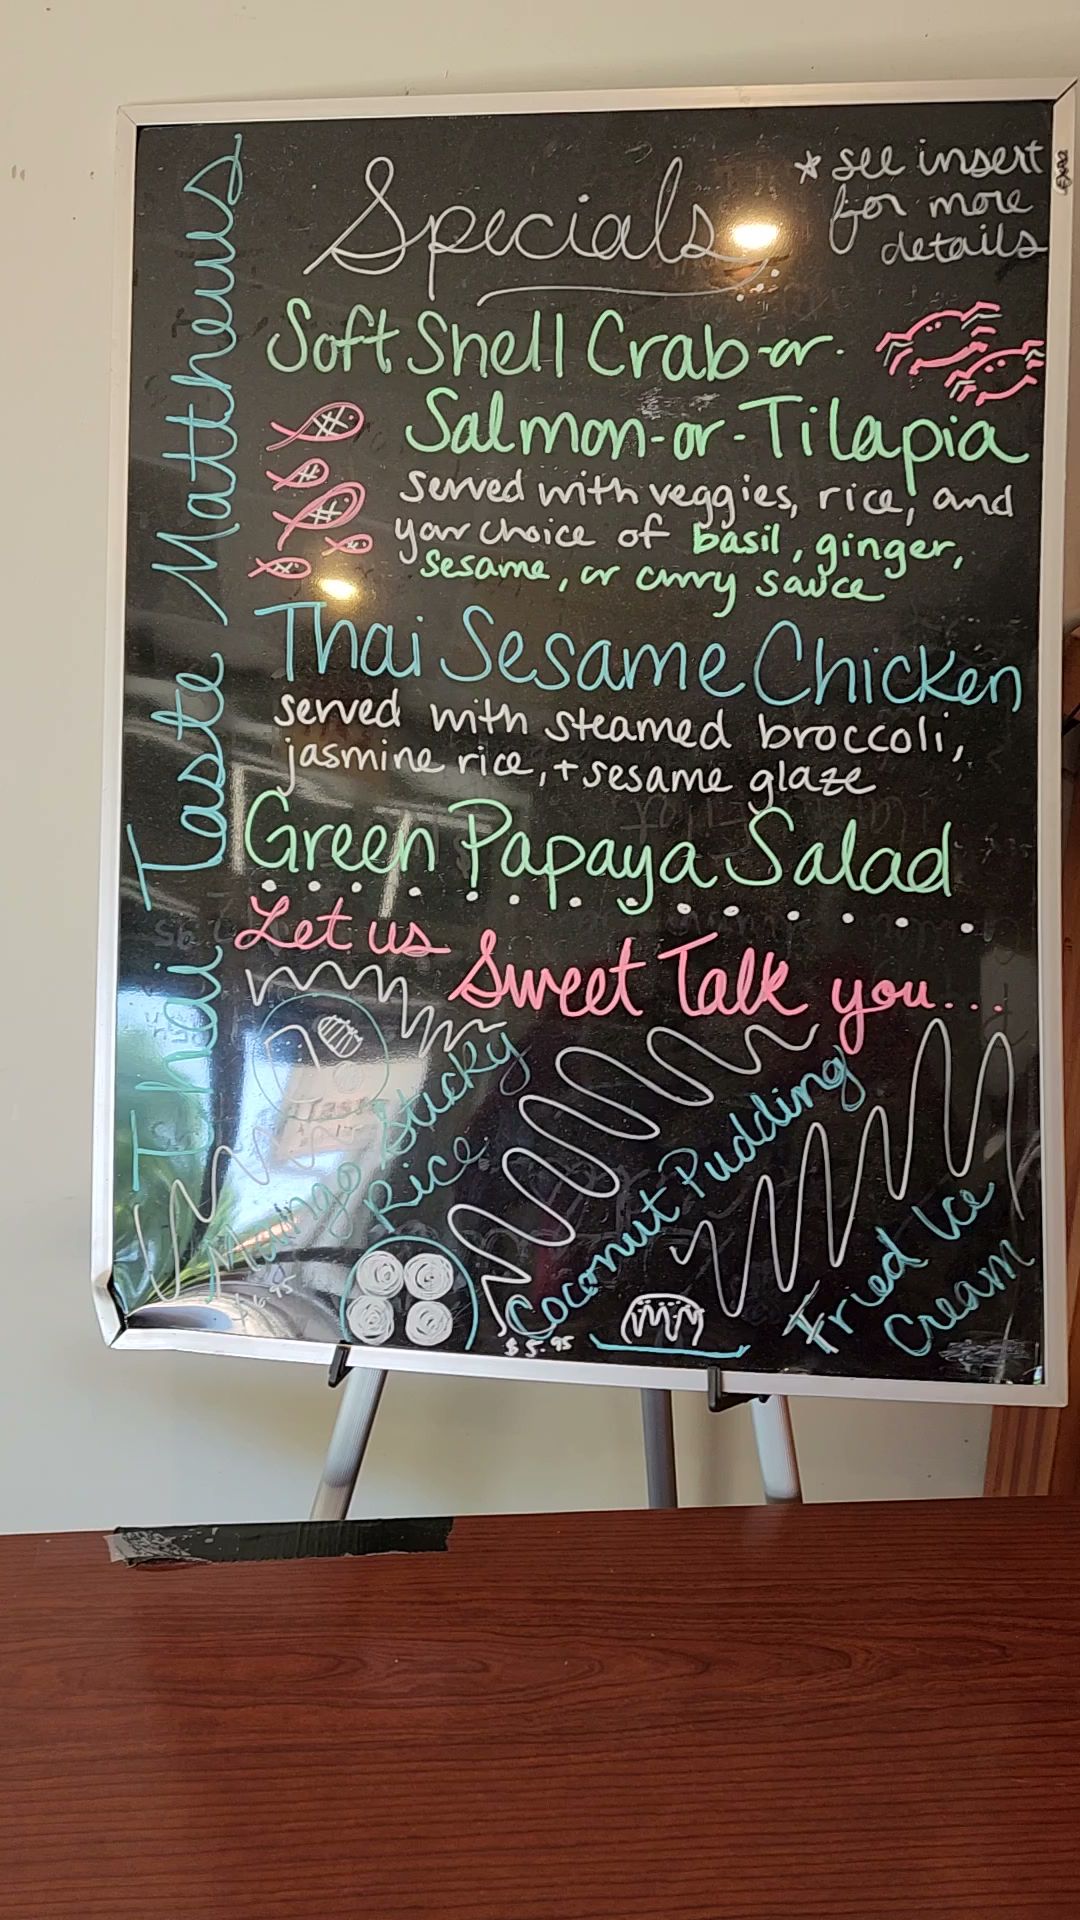 Thai Taste Matthews
Specials
* see insert
for more
details
Soft Shell Crab-or-
Salmon-or-Tilapia
served with veggies, rice, and
your choice of basil, ginger,
sesame, or curry sauce
Thai Sesame Chicken
served with steamed broccoli,
jasmine rice, + sesame glaze
Green Papaya Salad
Let us
Sweet Talk you...
Mango Sticky
Rice
Coconut Pudding
$5.95
Fried Ice
Cream